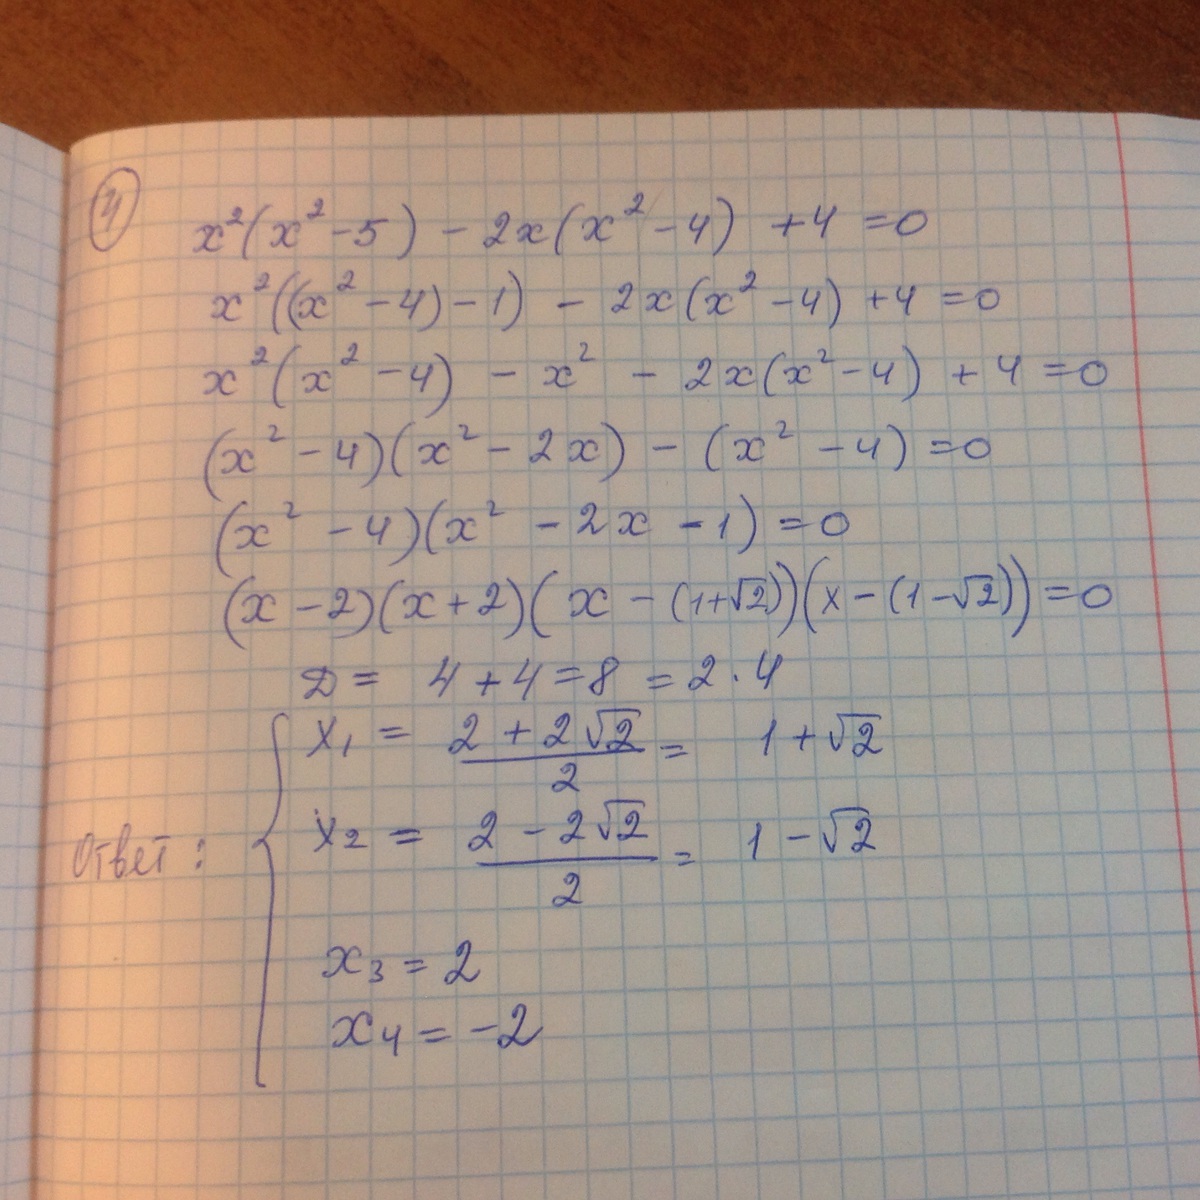 4
x²(x² - 5) - 2x(x² - 4) + 4 = 0
x²((x² - 4) - 1) - 2x(x² - 4) + 4 = 0
x²(x² - 4) - x² - 2x(x² - 4) + 4 = 0
(x² - 4)(x² - 2x) - (x² - 4) = 0
(x² - 4)(x² - 2x - 1) = 0
(x - 2)(x + 2)(x - (1+√2))(x - (1-√2)) = 0
D = 4 + 4 = 8 = 2 · 4
x₁ = (2 + 2√2)/2 = 1 + √2
Ответ: x₂ = (2 - 2√2)/2 = 1 - √2
x₃ = 2
x₄ = -2